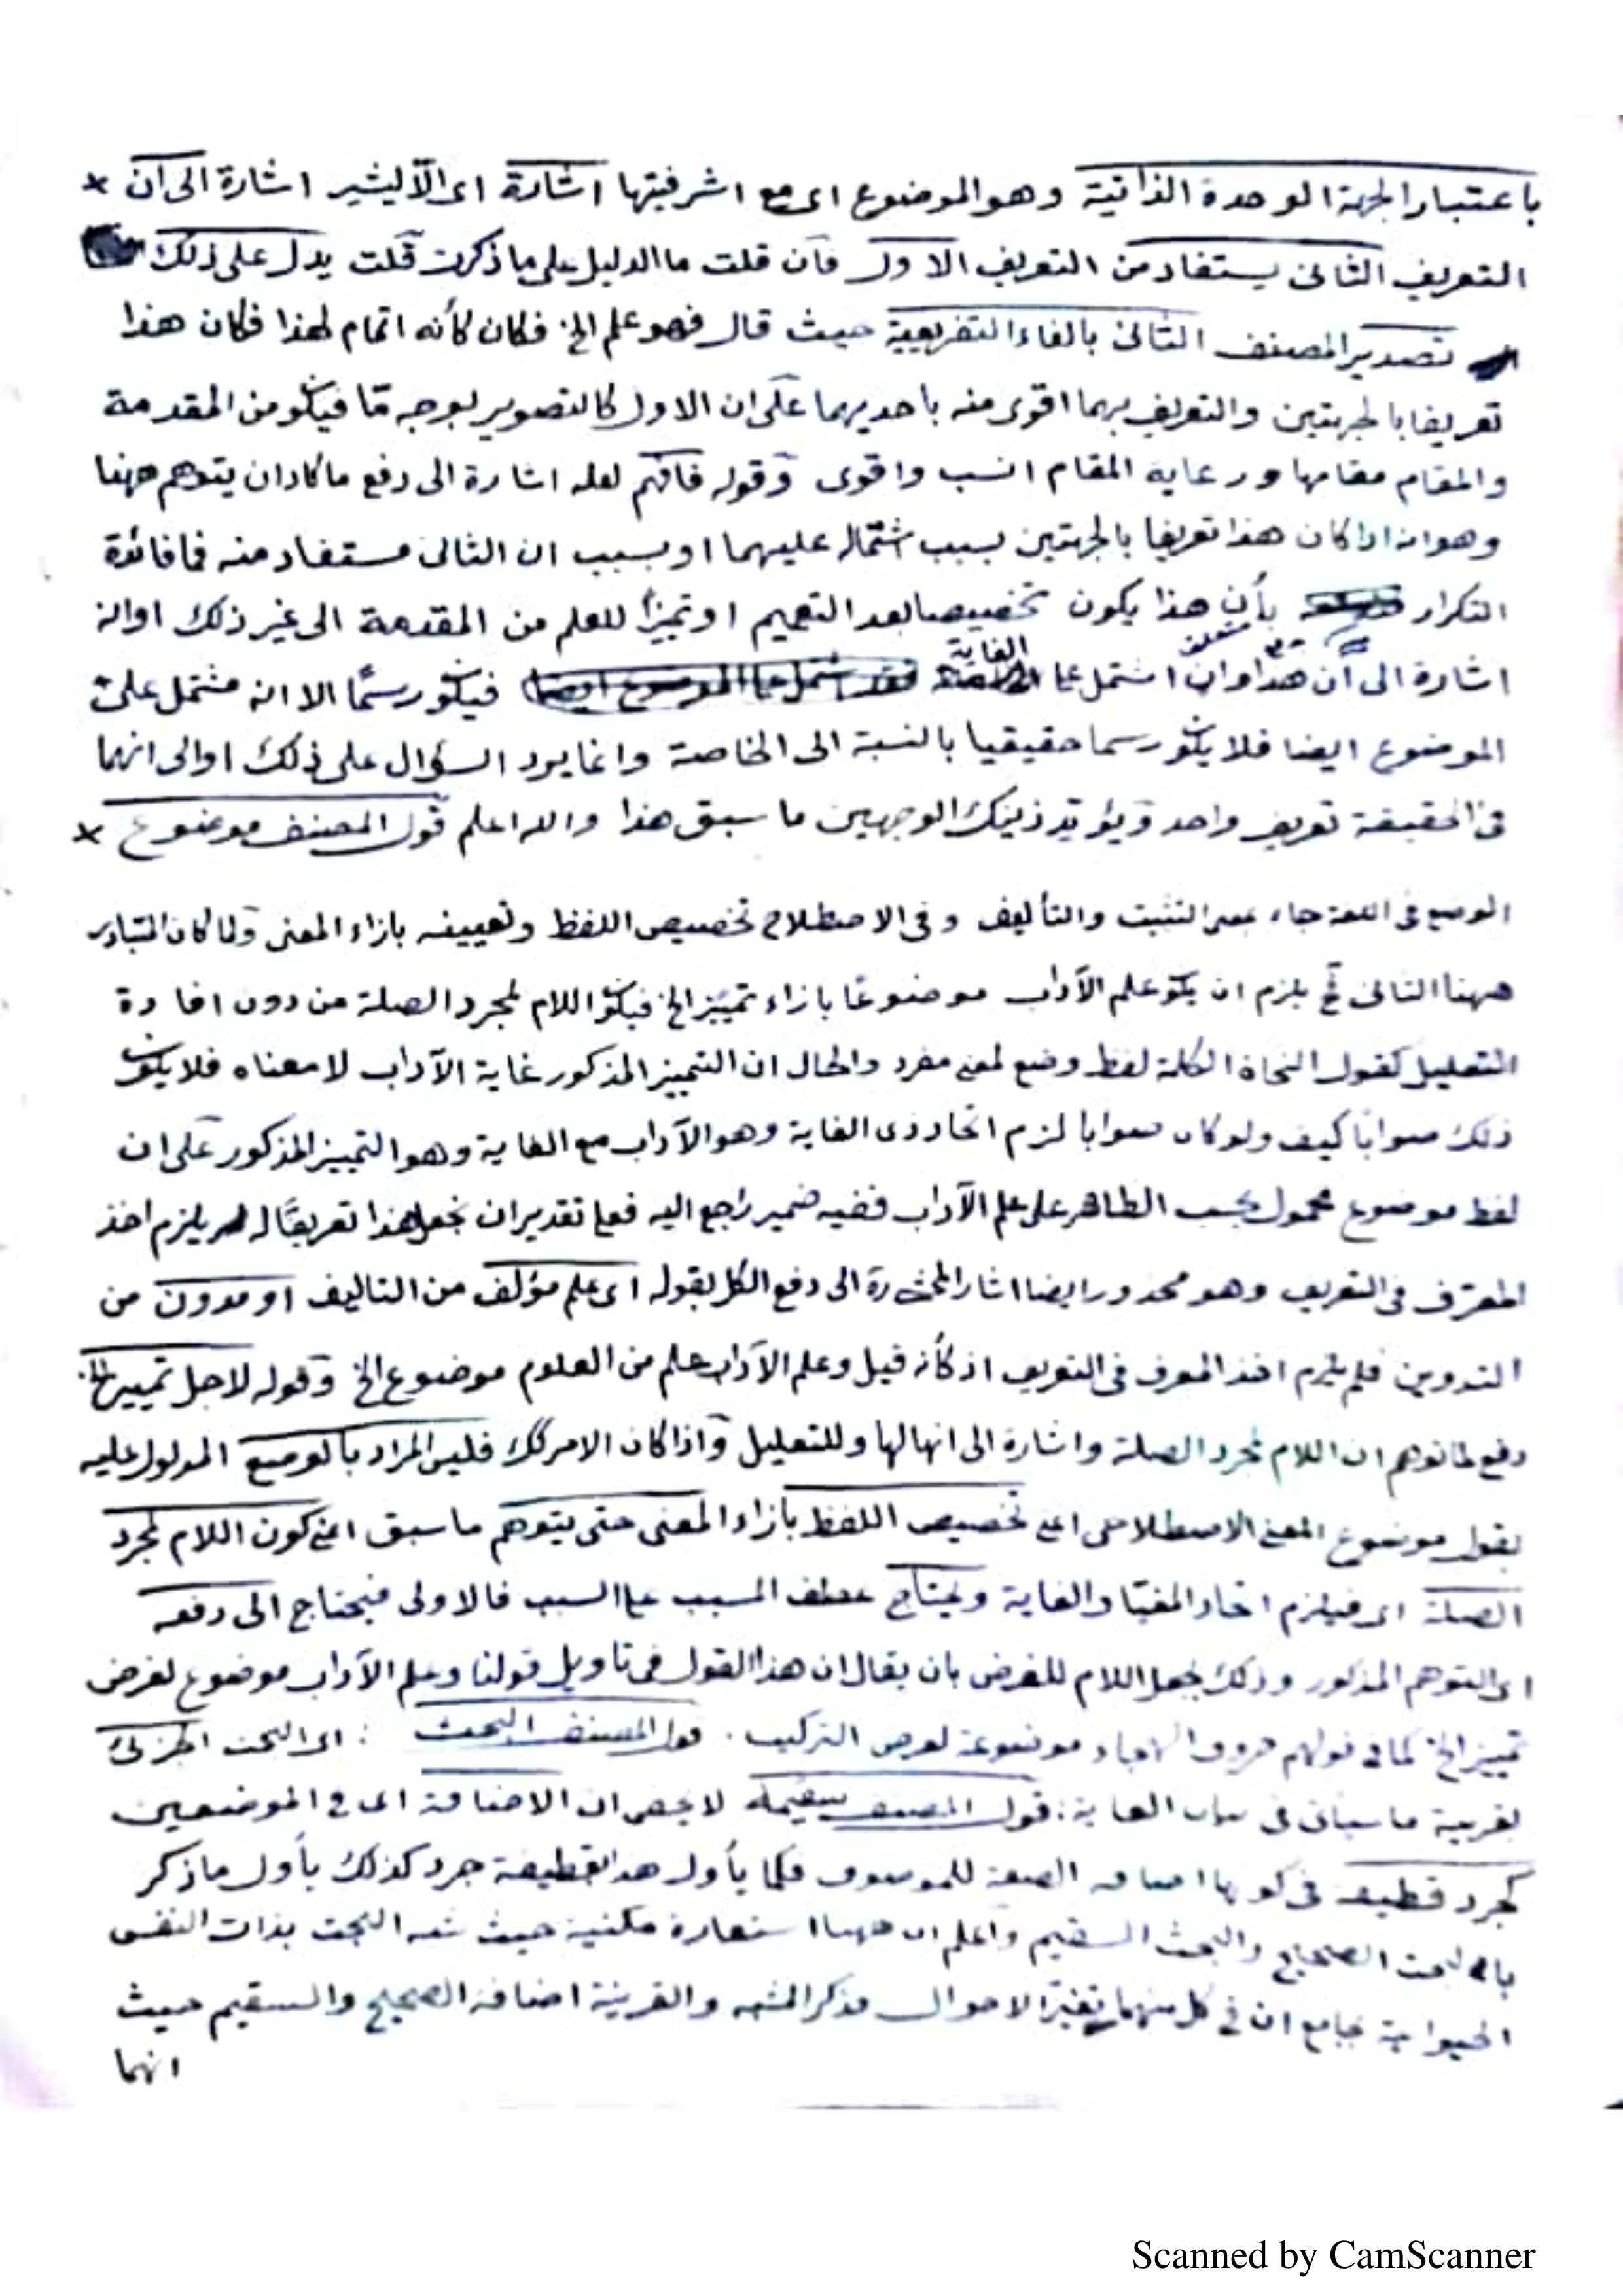 باعتبار الجهة الوحدة الذاتية وهو الموضوع اى مع اشرفيتها اشارة اى الآ ليشير اشارة الى ان
التعريف الثانى يستفاد من التعريف الاول فان قلت ما الدليل على ما ذكرت قلت يدل على ذلك
تصدير المصنف الثانى بالفاء التفريعية حيث قال فهو علم الخ فكان كأنه اتمام لهذا فكان هذا
تعريفا بالجهتين والتعريف بهما اقوى منه باحديهما على ان الاول كالتصوير بوجه مّا فيكون من المقدمة
والمقام مقامها ورعاية المقام انسب واقوى وقوله فافهم لعله اشارة الى دفع ما كاد ان يتوهم ههنا
وهو انه اذا كان هذا تعريفا بالجهتين بسبب شتماله عليهما او بسبب ان الثانى مستفاد منه فما فائدة
التكرار بأن هذا يكون تخصيصا بعد التعميم او تميزاً للعلم من المقدمة الى غير ذلك اوانه
اشارة الى أن هذا وان اشتمل على الغاية فيكون رسمًا الا انه مشتمل على
الموضوع ايضا فلا يكون رسما حقيقيا بالنسبة الى الخاصة وانما يرد السؤال على ذلك او الى انهما
فى الحقيقة تعريف واحد ويؤيد ذينك الوجهين ما سبق هذا والله اعلم قول المصنف موضوع
الوضع فى اللغة جاء بمعنى التثبت والتأليف وفى الاصطلاح تخصيص اللفظ وتعيينه بازاء المعنى ولما كان المتبادر
ههنا الثانى فح يلزم ان يكون علم الآداب موضوعًا بازاء تمييز الخ فيكون اللام لمجرد الصلة من دون افادة
التعليل كقول النحاة الكلمة لفظ وضع لمعنى مفرد والحال ان التمييز المذكور غاية الآداب لا معناه فلا يكون
ذلك صوابا كيف ولو كان صوابا لزم اتحاد ذى الغاية وهو الآداب مع الغاية وهو التمييز المذكور على ان
لفظ موضوع محمول بحسب الظاهر على علم الآداب ففيه ضمير راجع اليه فعلى تقدير ان نجعل هذا تعريفًا له يلزم اخذ
المعرّف فى التعريف وهو محذور ايضا اشار المحشى ره الى دفع الكل بقوله اى علم مؤلف من التاليف او مدون من
التدوين فلم يلزم اخذ المعرف فى التعريف اذ كأنه قيل وعلم الآداب علم من العلوم موضوع الخ وقوله لاجل تمييز الخ
دفع لما توهم ان اللام لمجرد الصلة واشارة الى انها لها وللتعليل واذا كان الامر كك فليس المراد بالوضع المدلول عليه
بقول موضوع المعنى الاصطلاحى اعنى تخصيص اللفظ بازاء المعنى حتى يتوهم ما سبق اعنى كون اللام لمجرد
الصلة اى فيلزم اتحاد المغيّا والغاية ويحتاج عطف المسبب على السبب فالاولى فيحتاج الى دفعه
اى التوهم المذكور وذلك بجعل اللام للغرض بان يقال ان هذا القول فى تاويل قولنا وعلم الآداب موضوع لغرض
تمييز الخ كما فى قولهم حروف الهجاء موضوعة لغرض التركيب . قول المصنف البحث : اى البحث الجزئى
بقرينة ما سيأتى فى بيان الغاية : قول المصنف سقيمه لا يخفى ان الاضافة اى فى الموضعين
كجرد قطيفة فى كونها اضافة الصفة للموصوف فكما يأول هذا بقطيفة جرد كذلك يأول ما ذكر
بالبحث الصحيح والبحث السقيم واعلم ان ههنا استعارة مكنية حيث شبه البحث بذات النفس
الحيوانية بجامع ان فى كل منهما تغيّر الاحوال فذكر المشبه والقرينة اضافة الصحيح والسقيم حيث
انهما
Scanned by CamScanner